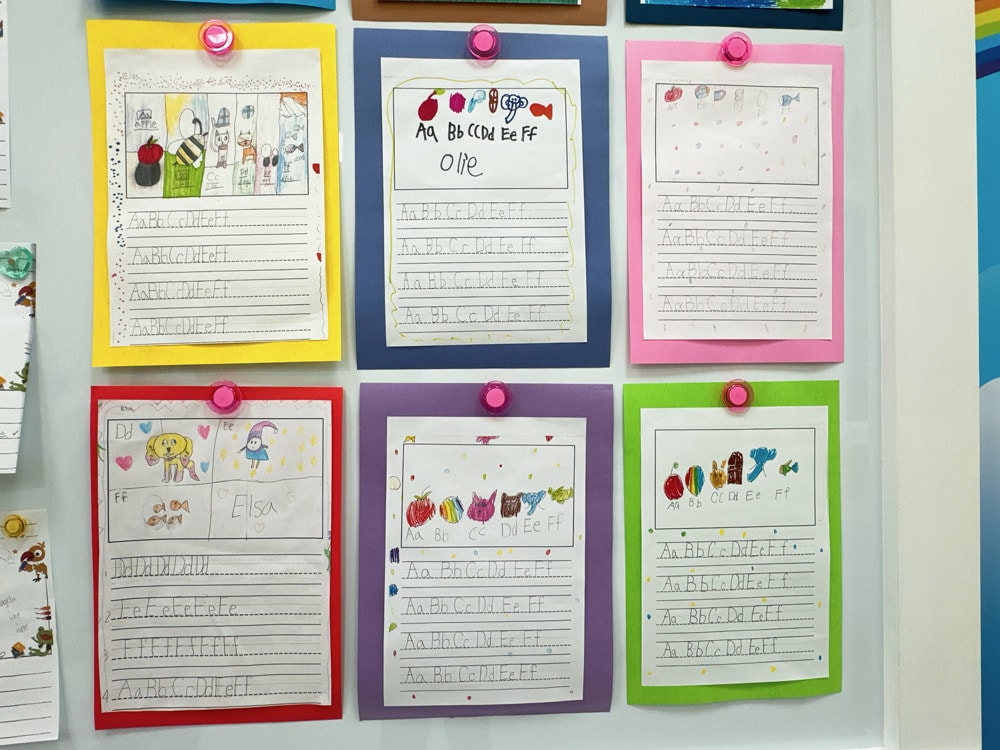 apple
Cc
AaBbCcDdEeFf
AaBbCcDdEeFf
AaBbCcDdEeFf
AaBbCcDdEeFf
Aa Bb CcDd Ee Ff
Olie
Aa Bb Cc Dd Ee Ff
Aa Bb Cc Dd Ee Ff
Aa Bb Cc Dd Ee Ff
Aa Bb Cc Dd Ee Ff
Aa Bb Cc Dd Ee Ff
Aa Bb Cc Dd Ee Ff
Aa Bb Cc Dd Ee Ff
Aa Bb Cc Dd Ee Ff
Elsa
Dd
Ee
Ff
Elsa
Dd Dd Dd Dd Dd
2 Ee Ee Ee Ee Ee
3 Ff Ff Ff Ff Ff Ff
4 AaBbCcDdEeFf
Aa Bb Cc Dd Ee Ff
Aa Bb Cc Dd Ee Ff
Aa Bb Cc Dd Ee Ff
Aa Bb Cc Dd Ee Ff
Aa Bb Cc Dd Ee Ff
Aa Bb Cc Dd Ee Ff
Aa Bb Cc Dd Ee Ff
Aa Bb Cc Dd Ee Ff
Aa Bb Cc Dd Ee Ff
Aa Bb Cc Dd Ee Ff